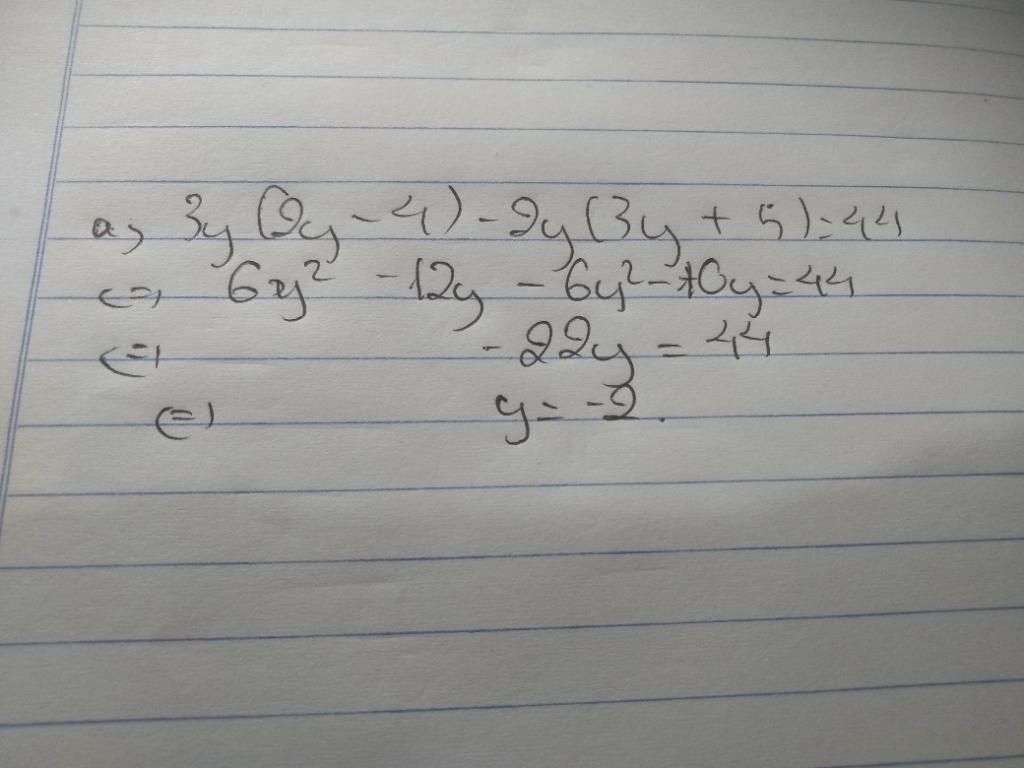 a) 3y(2y - 4) - 2y(3y + 5) = 44
<=> 6y² - 12y - 6y² - 10y = 44
<=> - 22y = 44
<=> y = -2.